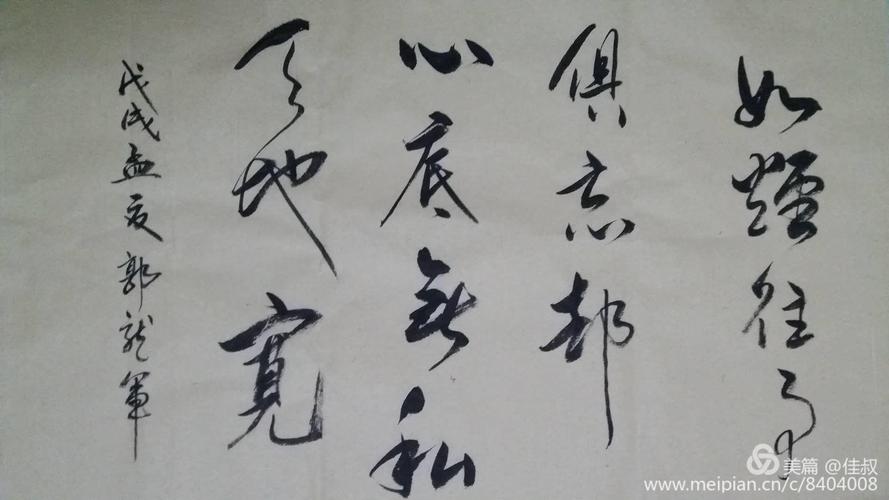 如煙往事
俱忘却
心底无私
天地寬
戊戌孟夏郭龙軍
美篇 @佳叔
www.meipian.cn/c/8404008